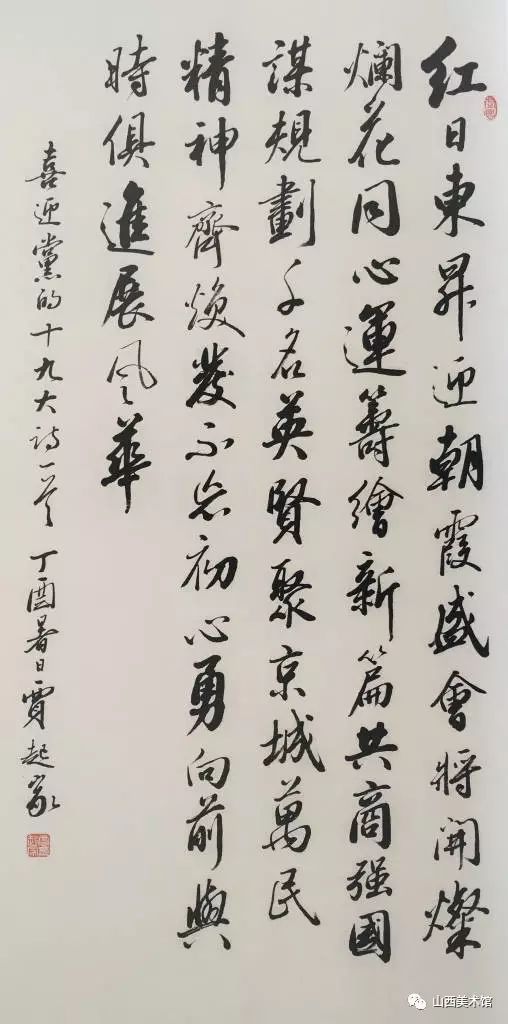 红日東昇迎朝霞盛會將開燦
爛花同心運籌繪新篇共商强國
謀規劃千名英賢聚京城萬民
精神齊焕發不忘初心勇向前與
時俱進展风華
喜迎黨的十九大詩一首 丁酉暑日賈起家
山西美术馆